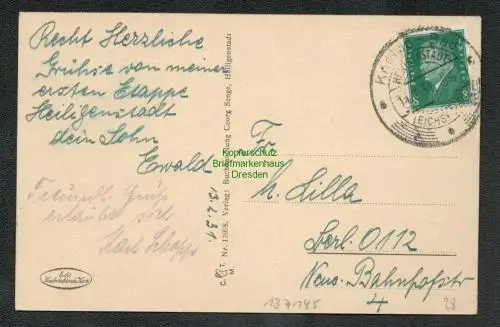 Recht Herzliche
Grühse von meiner
ersten Etappe
Heiligenstadt
dein Sohn
Ewald
Freundl. Grüße
erlaubt sich
Karl
Echt
Kupfertiefdruck-Karte
C. T. Nr. 11668. Verlag: Buchhandlung Georg Senge, Heiligenstadt
M.
13.2.31.
Kupferschutz
Briefmarkenhaus
Dresden
HEILIGENSTADT
(EICHSF
8
Fr
M. Lilla
Berl. O 112
Neue Bahnhofstr
4
137185
28